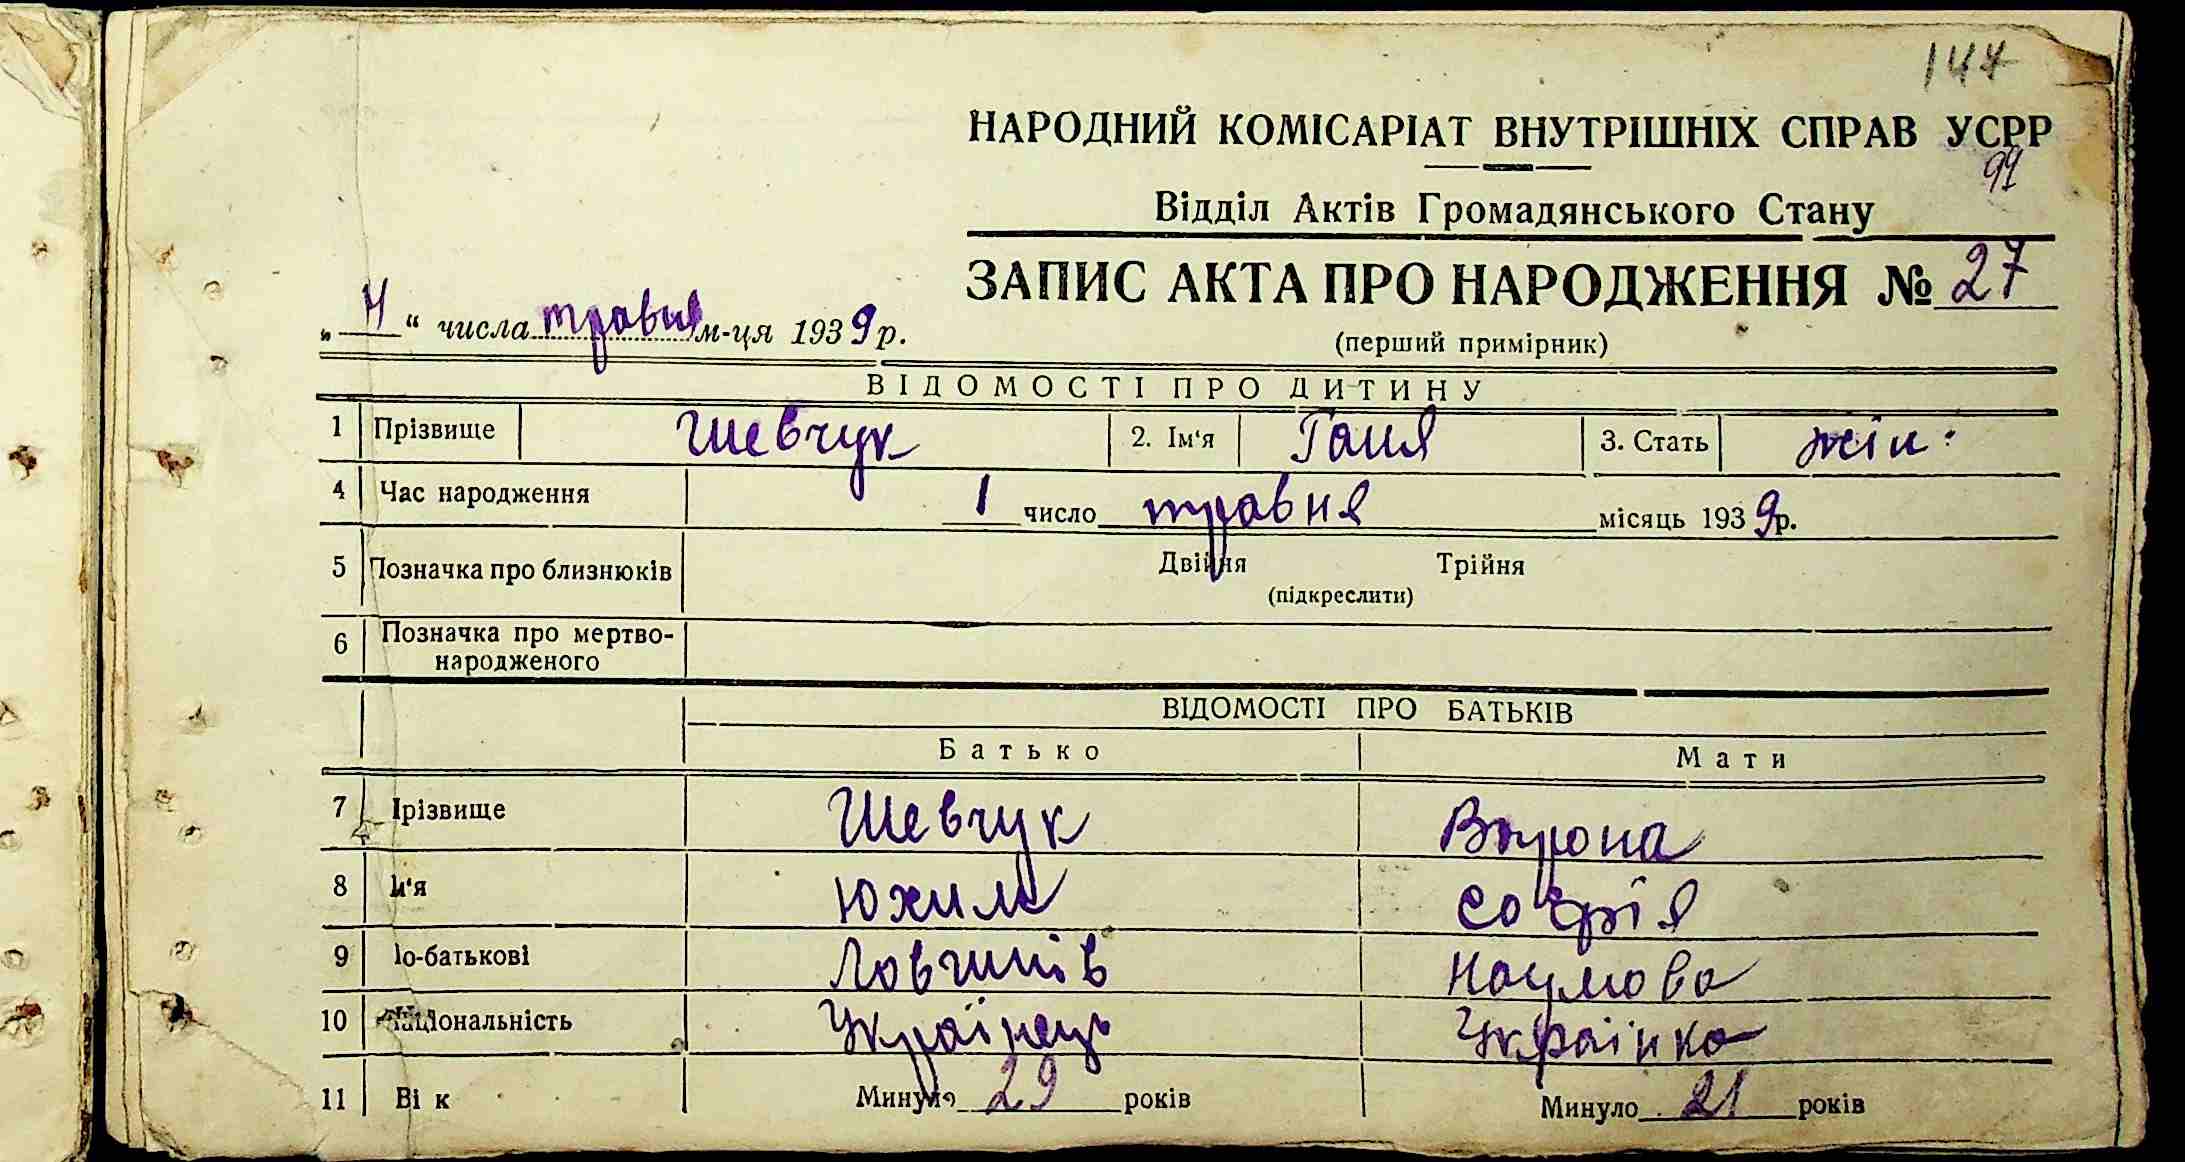 147
НАРОДНИЙ КОМІСАРІАТ ВНУТРІШНІХ СПРАВ УСРР
99
Відділ Актів Громадянського Стану
ЗАПИС АКТА ПРО НАРОДЖЕННЯ № 27
„4“ числа травня м-ця 1939 р.
(перший примірник)
ВІДОМОСТІ ПРО ДИТИНУ
1 Прізвище Шевчук 2. Ім'я Ганя 3. Стать жін.
4 Час народження 1 число травня місяць 1939 р.
5 Позначка про близнюків Двійня Трійня
(підкреслити)
6 Позначка про мертво-
народженого
ВІДОМОСТІ ПРО БАТЬКІВ
Батько Мати
7 Прізвище Шевчук Ворона
8 Ім'я Юхим Софія
9 По-батькові Наумова
10 Національність Українець Українка
11 Вік Минуло 29 років Минуло 21 років